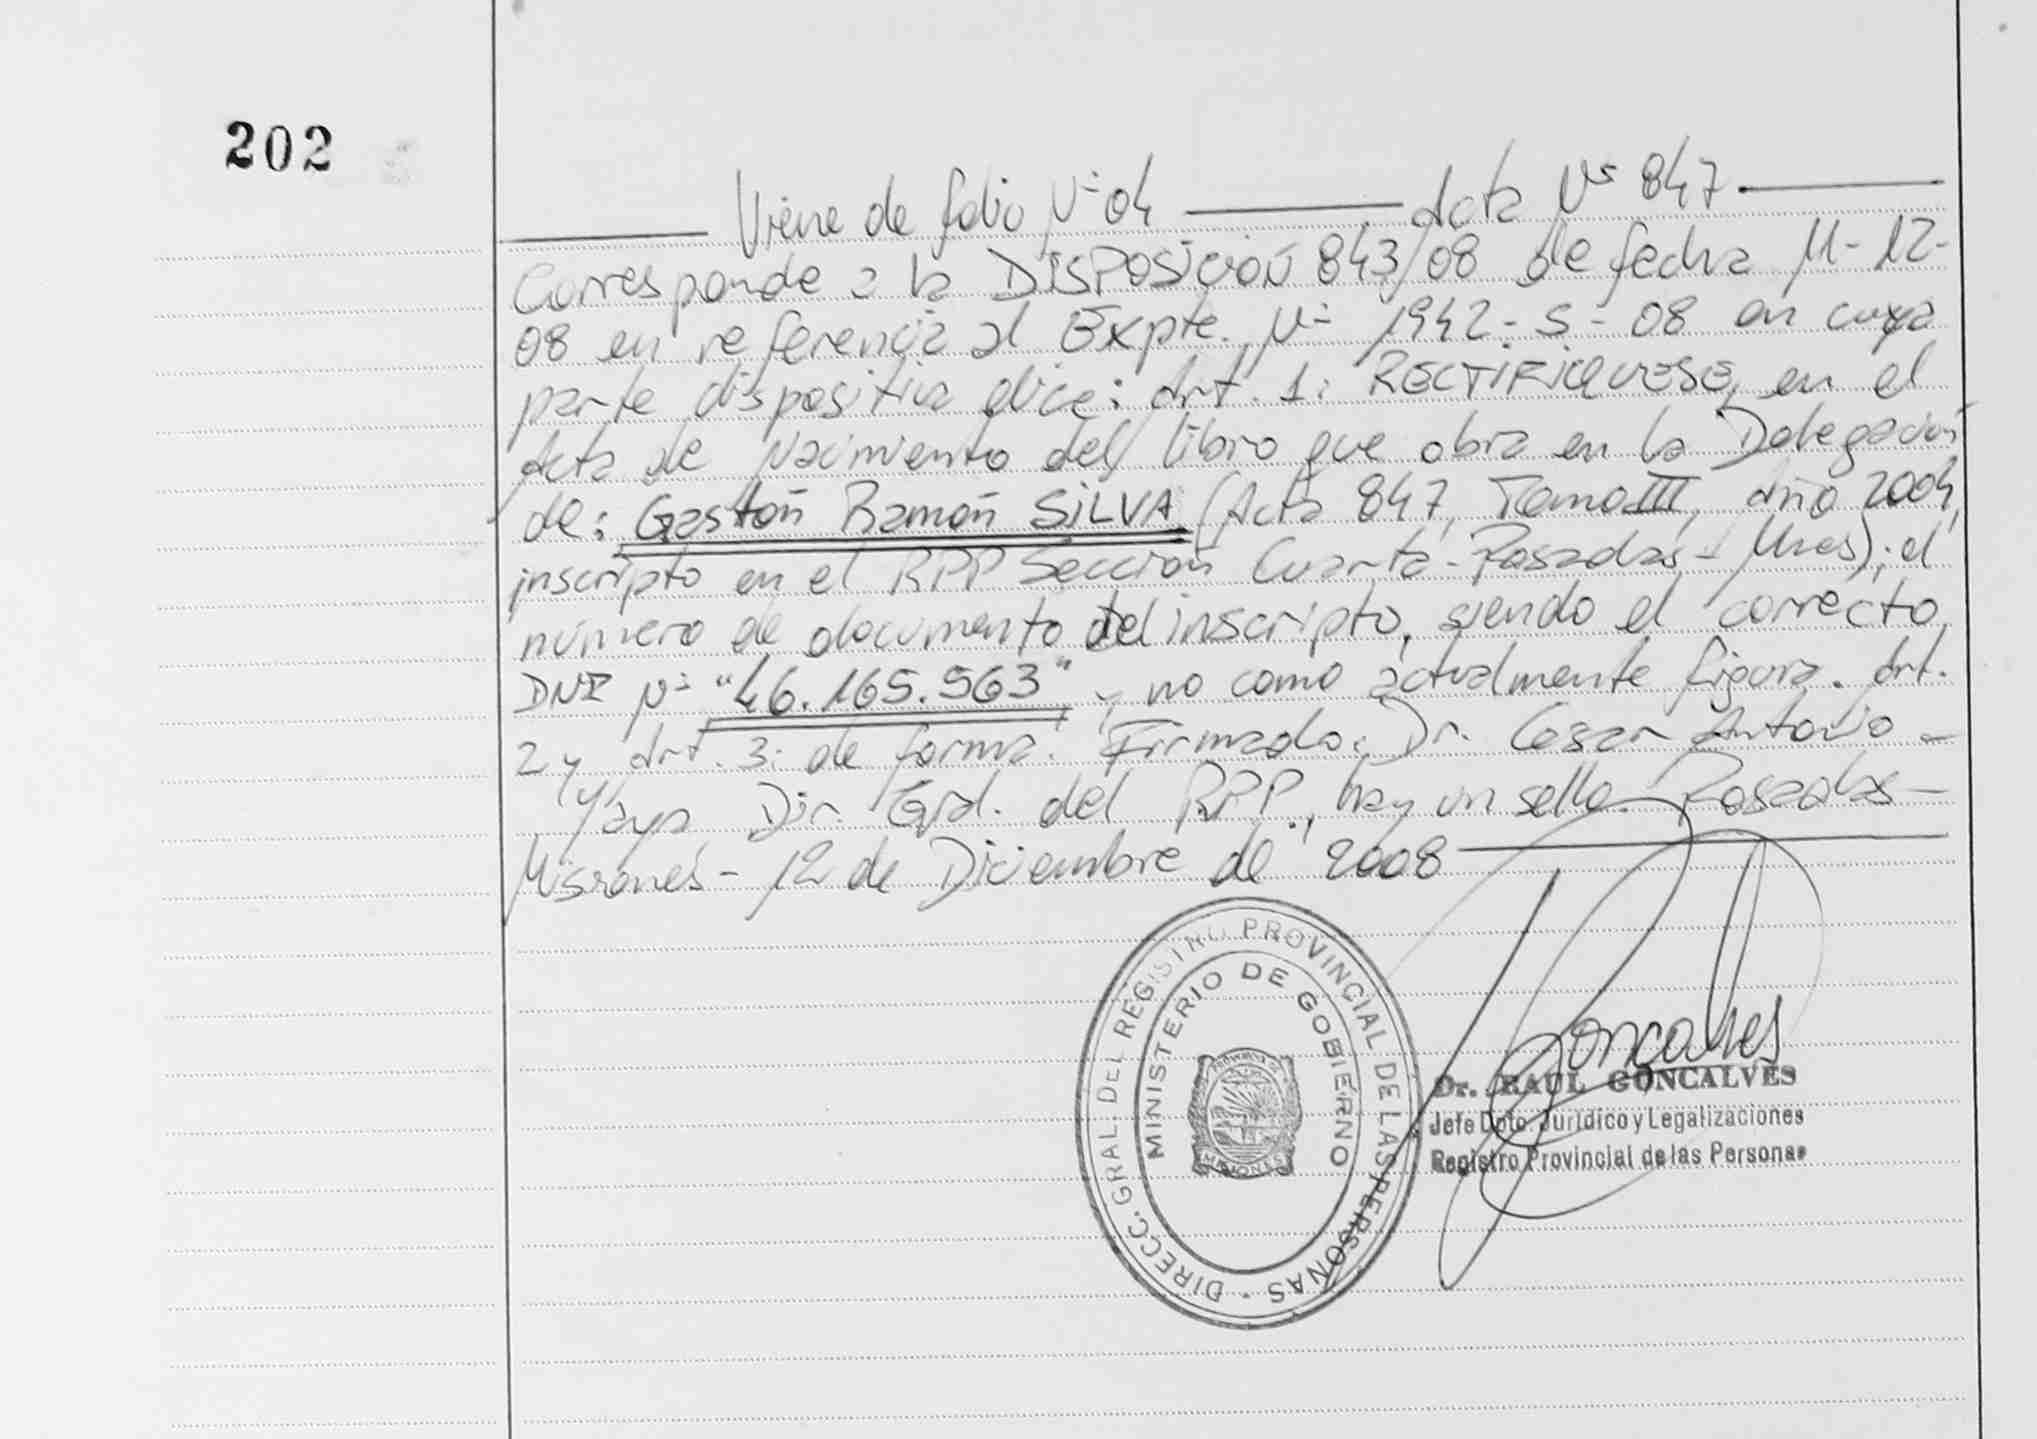 202
Viene de folio Nº 04 Acta Nº 847
Corresponde a la DISPOSICIÓN 843/08 de fecha 11-12-
08 en referencia al Expte. Nº 1942-S-08 en cuya
parte dispositiva dice: Art. 1: RECTIFIQUESE, en el
Acta de Nacimiento del libro que obra en la Delegación
de: Gastón Ramón SILVA (Acta 847, Tomo III, Año 2004,
inscripto en el RPP Sección Cuarta-Posadas-Mnes); el
número de documento del inscripto, siendo el correcto
DNI Nº "46.165.563" y no como actualmente figura. Art.
2 y Art. 3: de forma. Firmado: Dr. Cesar Antonio
Dir. Gral. del RPP, hay un sello. Posadas-
Misiones- 12 de Diciembre de 2008
DIRECC. GRAL. DEL REGISTRO PROVINCIAL DE LAS PERSONAS
MINISTERIO DE GOBIERNO
MISIONES
Goncalves
Dr. RAUL GONCALVES
Jefe Dpto. Jurídico y Legalizaciones
Registro Provincial de las Personas